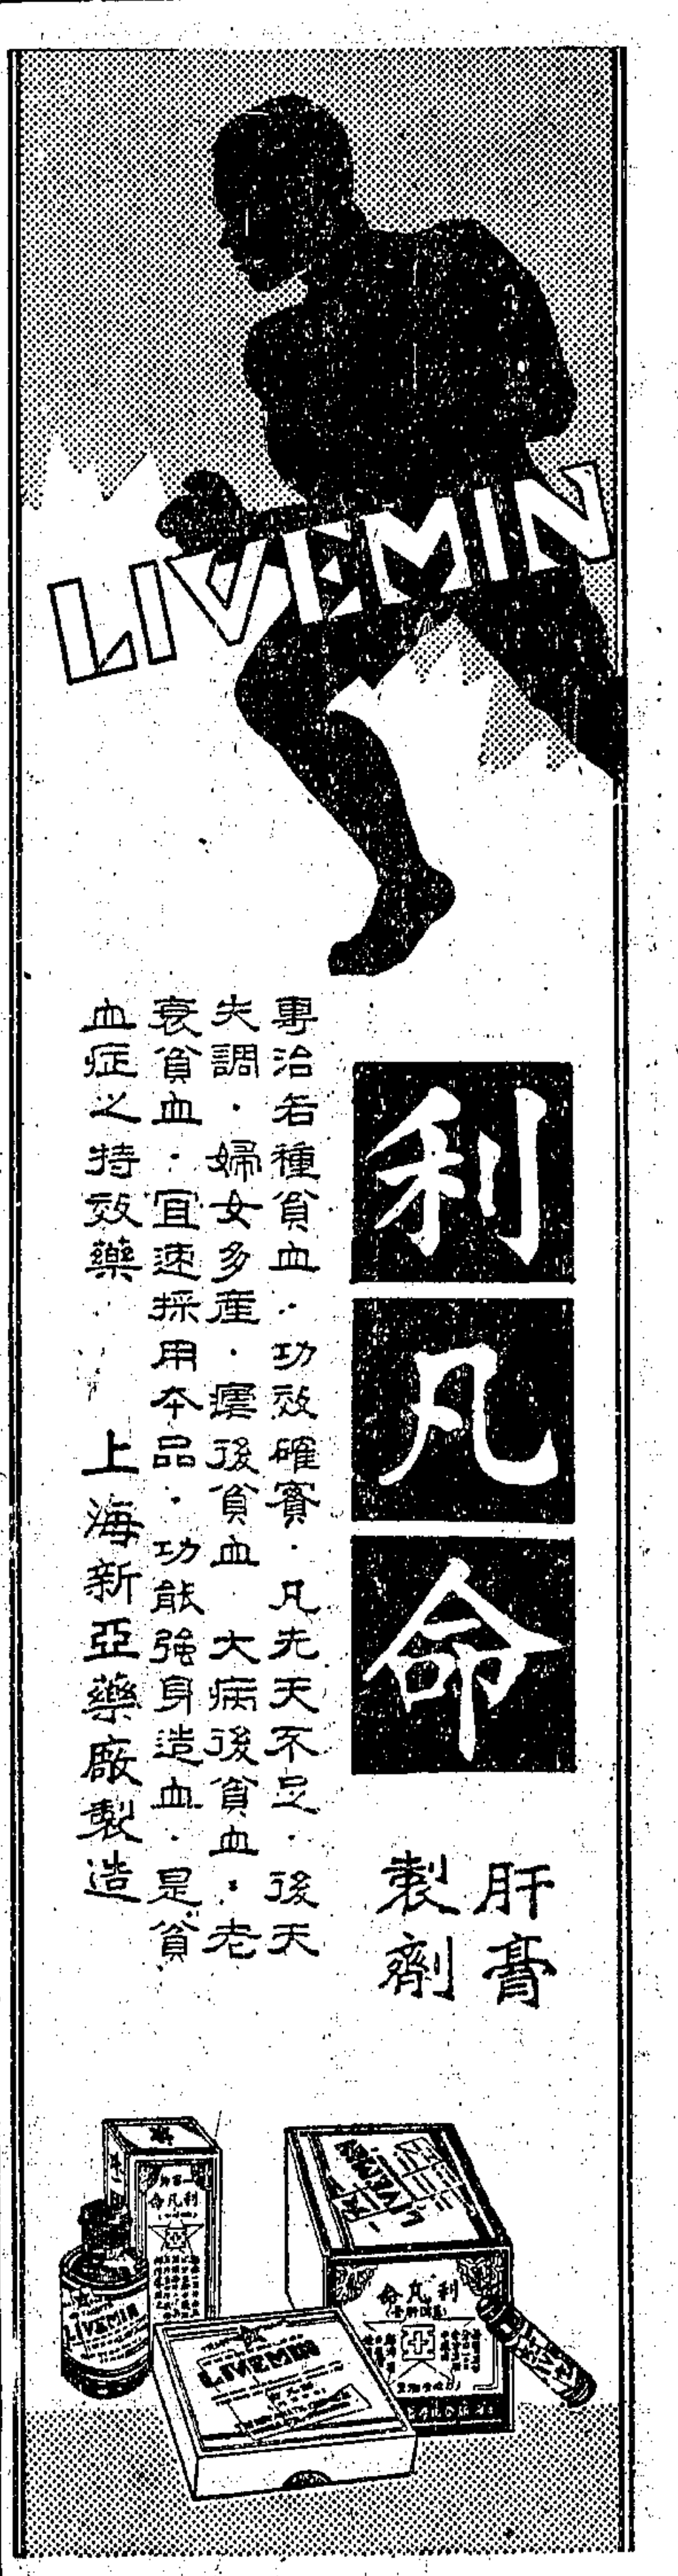 LIVEMIN
利凡命
肝膏
製劑
專治各種貧血．功效確實．凡先天不足．後天
失調．婦女多產．瘧後貧血．大病後貧血．老
衰貧血．宜速採用本品．功能強身造血．是貧
血症之特效藥
上海新亞藥廠製造
利凡命
LIVEMIN
LIVEMIN
利凡命